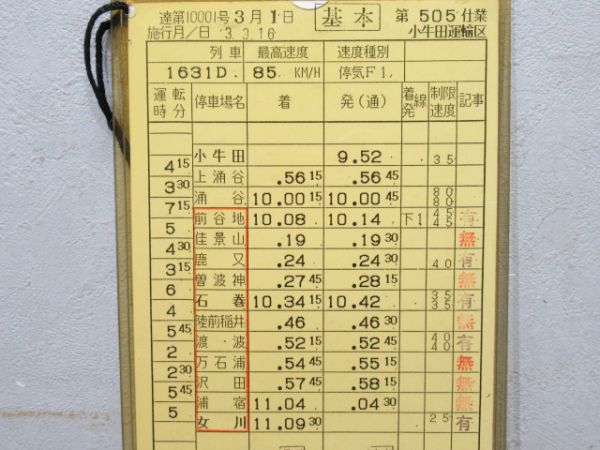 達第10001号 3月1日 基本 第 505 仕業
施行月/日 3.3.16 小牛田運輸区
列車 最高速度 速度種別
1631D. 85 KM/H 停気F1
運転時分 停車場名 着 発(通) 着発線 制限速度 記事
小牛田 9.52 35
4 15
上涌谷 .56 15 .56 45
3 30
涌谷 10.00 15 10.00 45 80 80
7 15
前谷地 10.08 10.14 下1 45 45 有
5
佳景山 .19 .19 30 無
4 30
鹿又 .24 .24 30 40 有
3 15
曽波神 .27 45 .28 15 無
6
石巻 10.34 15 10.42 35 35 有
4
陸前稲井 .46 .46 30 無
5 45
渡波 .52 15 .52 45 40 40 有
2
万石浦 .54 45 .55 15 無
2 30
沢田 .57 45 .58 15 無
5 45
浦宿 11.04 .04 30 無
5
女川 11.09 30 25 有